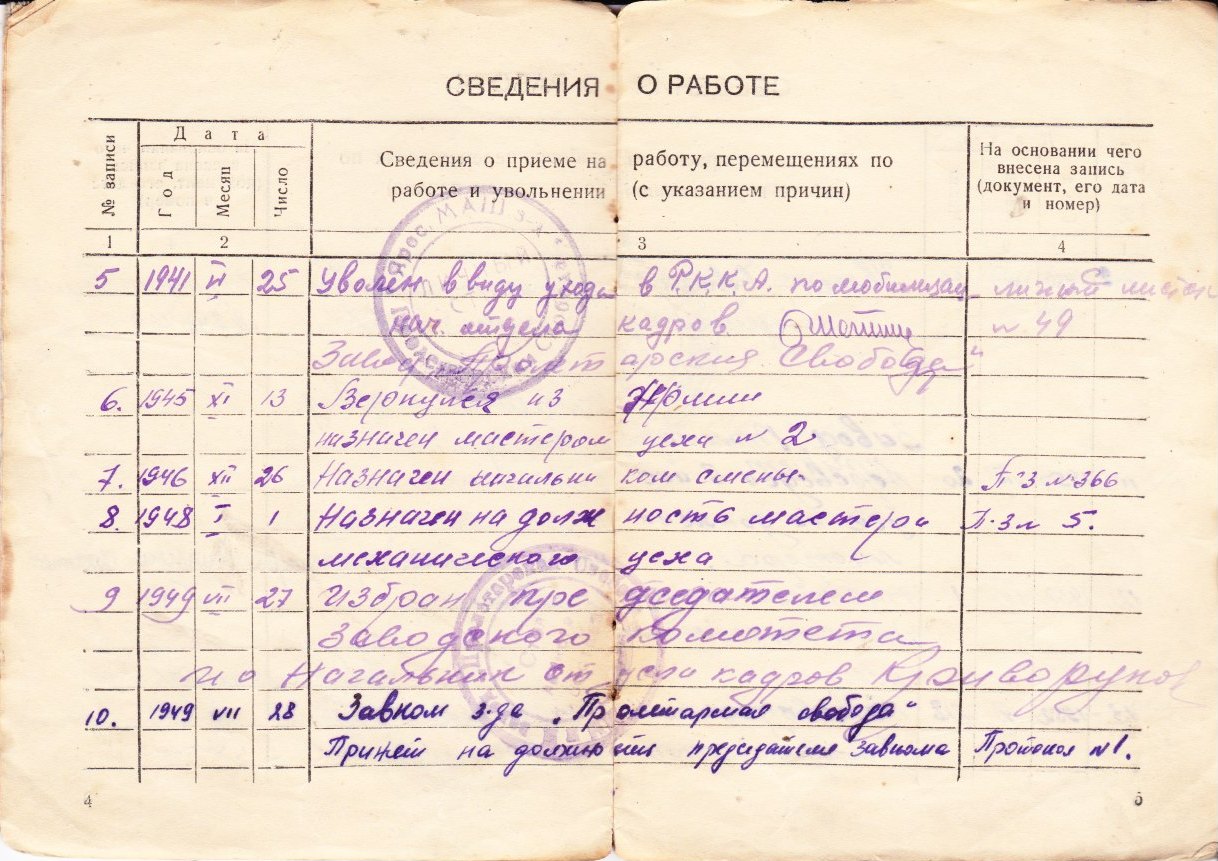 СВЕДЕНИЯ О РАБОТЕ
№ записи
Дата
Год
Месяц
Число
Сведения о приеме на работу, перемещениях по
работе и увольнении (с указанием причин)
На основании чего
внесена запись
(документ, его дата
и номер)
1 2 3 4
5 1941 25 Уволен ввиду ухода в Р.К.К.А. по мобилизац личный листок
нач. отдела кадров н. 49
Завод "Пролетарская Свобода"
6. 1945 XI 13 Вернулся из Армии
назначен мастером цеха № 2
7. 1946 XII 26 Назначен начальником смены. П-З № 366
8. 1948 I 1 Назначен на должность мастера П-З № 5.
механического цеха
9 1949 VII 27 Избран председателем
Заводского комитета
и о Начальник отдела кадров Криворуков
10. 1949 VII 28 Завком з-да „Пролетарская свобода"
Принят на должность председателя завкома Протокол №1.
4 5